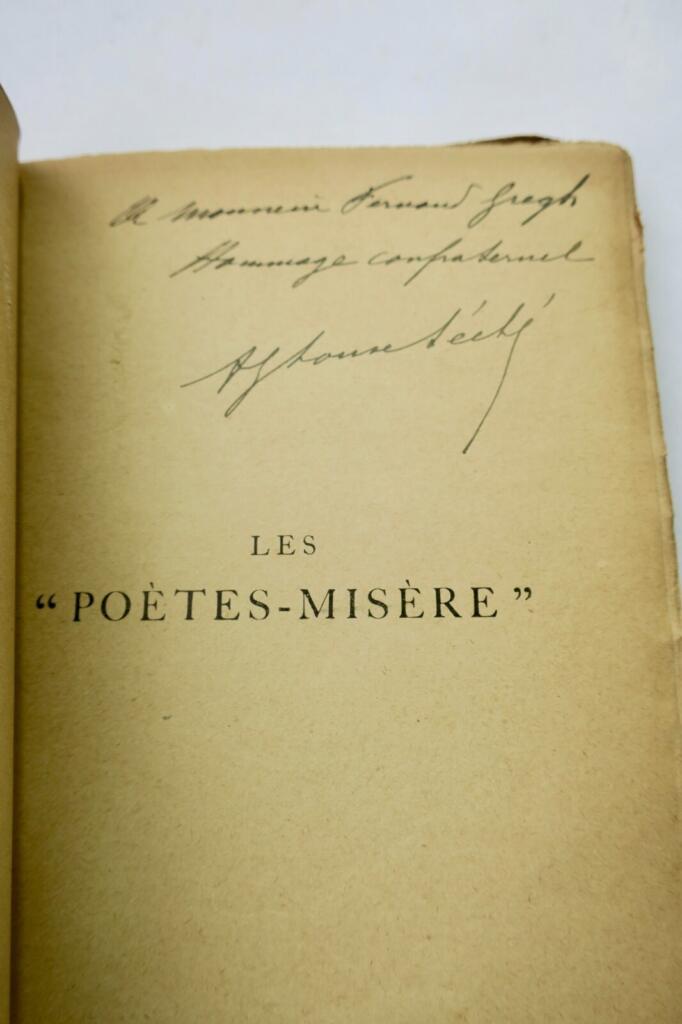 A Monsieur Fernand Gregh
Hommage confraternel
Alphonse Séché
LES
“ POÈTES-MISÈRE ”